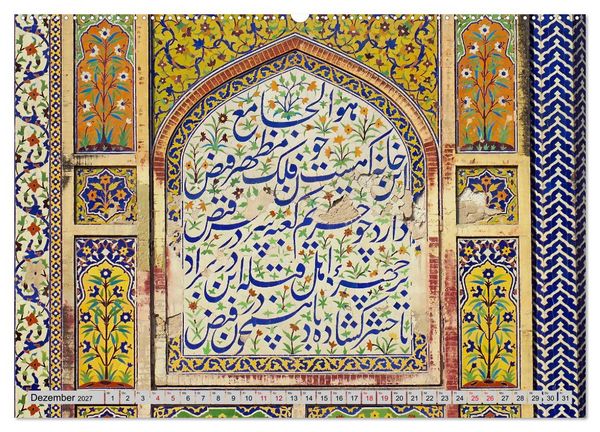 هو الجامع
این خانه که هست چون فلک مظهر فیض
دارد چو حریم کعبه در فیض
بر چهره اهل قبله این در مراد
تا حشر کشاده باد فیض
Dezember 2027 1 2 3 4 5 6 7 8 9 10 11 12 13 14 15 16 17 18 19 20 21 22 23 24 25 26 27 28 29 30 31